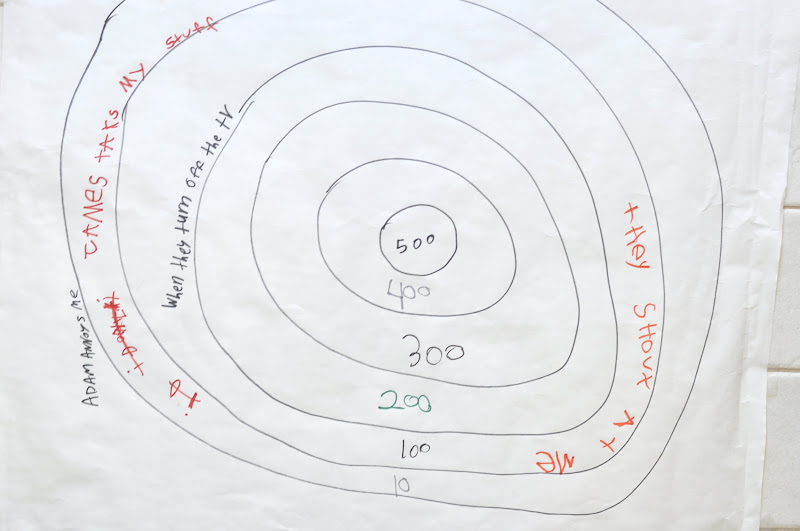 JAMES TAKS MY stuff
When they turn OFF the tv
ADAM ANNOYS Me
they SHOUt At ME
500
400
300
200
100
10